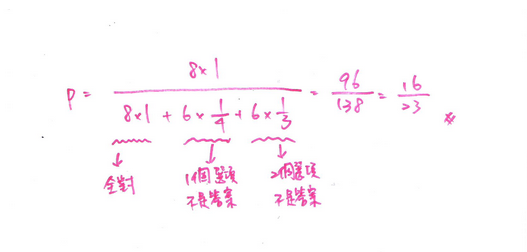 P = \frac{8×1}{8×1 + 6×\frac{1}{4} + 6×\frac{1}{3}} = \frac{96}{138} = \frac{16}{23}
全對 1個選項 2個選項
不是答案 不是答案